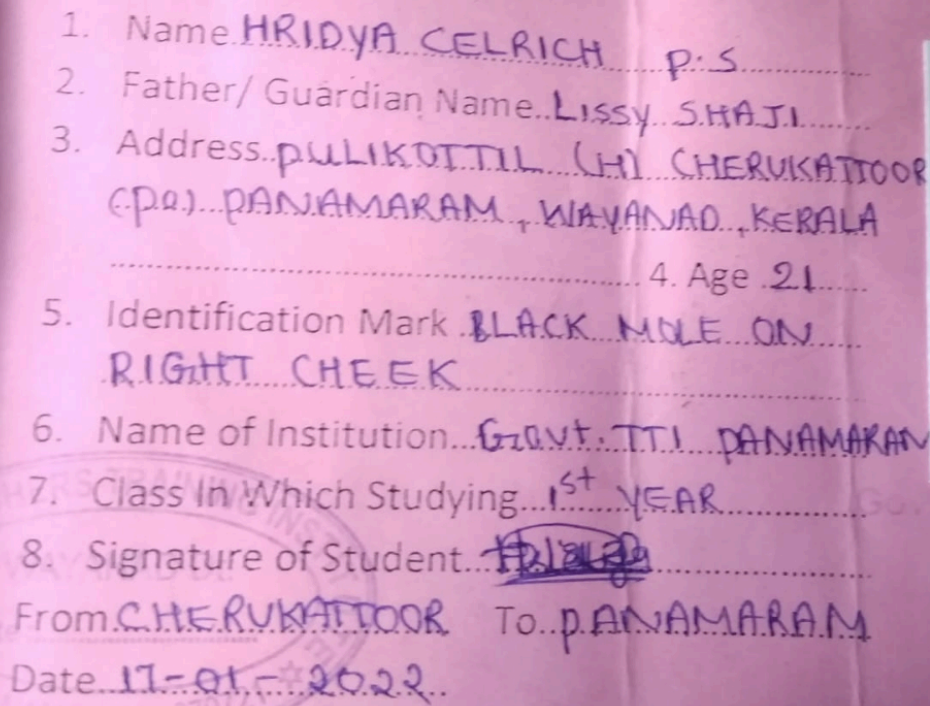 1. Name HRIDYA CELRICH P.S
2. Father/ Guardian Name..LISSY SHAJI
3. Address..PULIKOTTIL (H) CHERUKATTOOR
(PO) PANAMARAM, WAYANAD, KERALA
4. Age 21
5. Identification Mark BLACK MOLE ON
RIGHT CHEEK
6. Name of Institution...Govt. TTI PANAMARAM
7. Class In Which Studying...1st YEAR
8. Signature of Student...
From CHERUKATTOOR To..PANAMARAM
Date..17-01-2022..